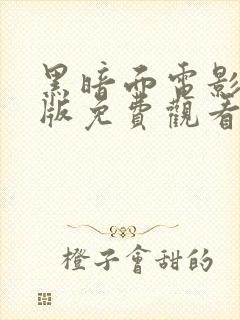 黑暗面電影
版免費觀看
橙子會甜的